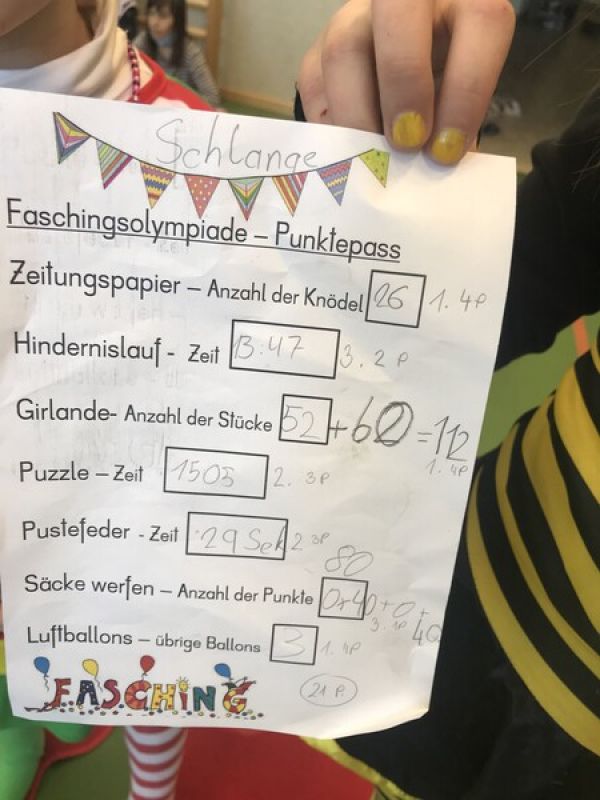 Schlange
Faschingsolympiade – Punktepass
Zeitungspapier – Anzahl der Knödel 26 1. 4P
Hindernislauf - Zeit 13:47 3. 2 P
Girlande- Anzahl der Stücke 52 + 60 = 112
1. 4P
Puzzle – Zeit 1505 2. 3P
Pustefeder - Zeit 29 Sek 2 3P
80
Säcke werfen – Anzahl der Punkte 0+40+0+
40
3. 1P
Luftballons – übrige Ballons 3 1. 4P
FASCHING
21 P.